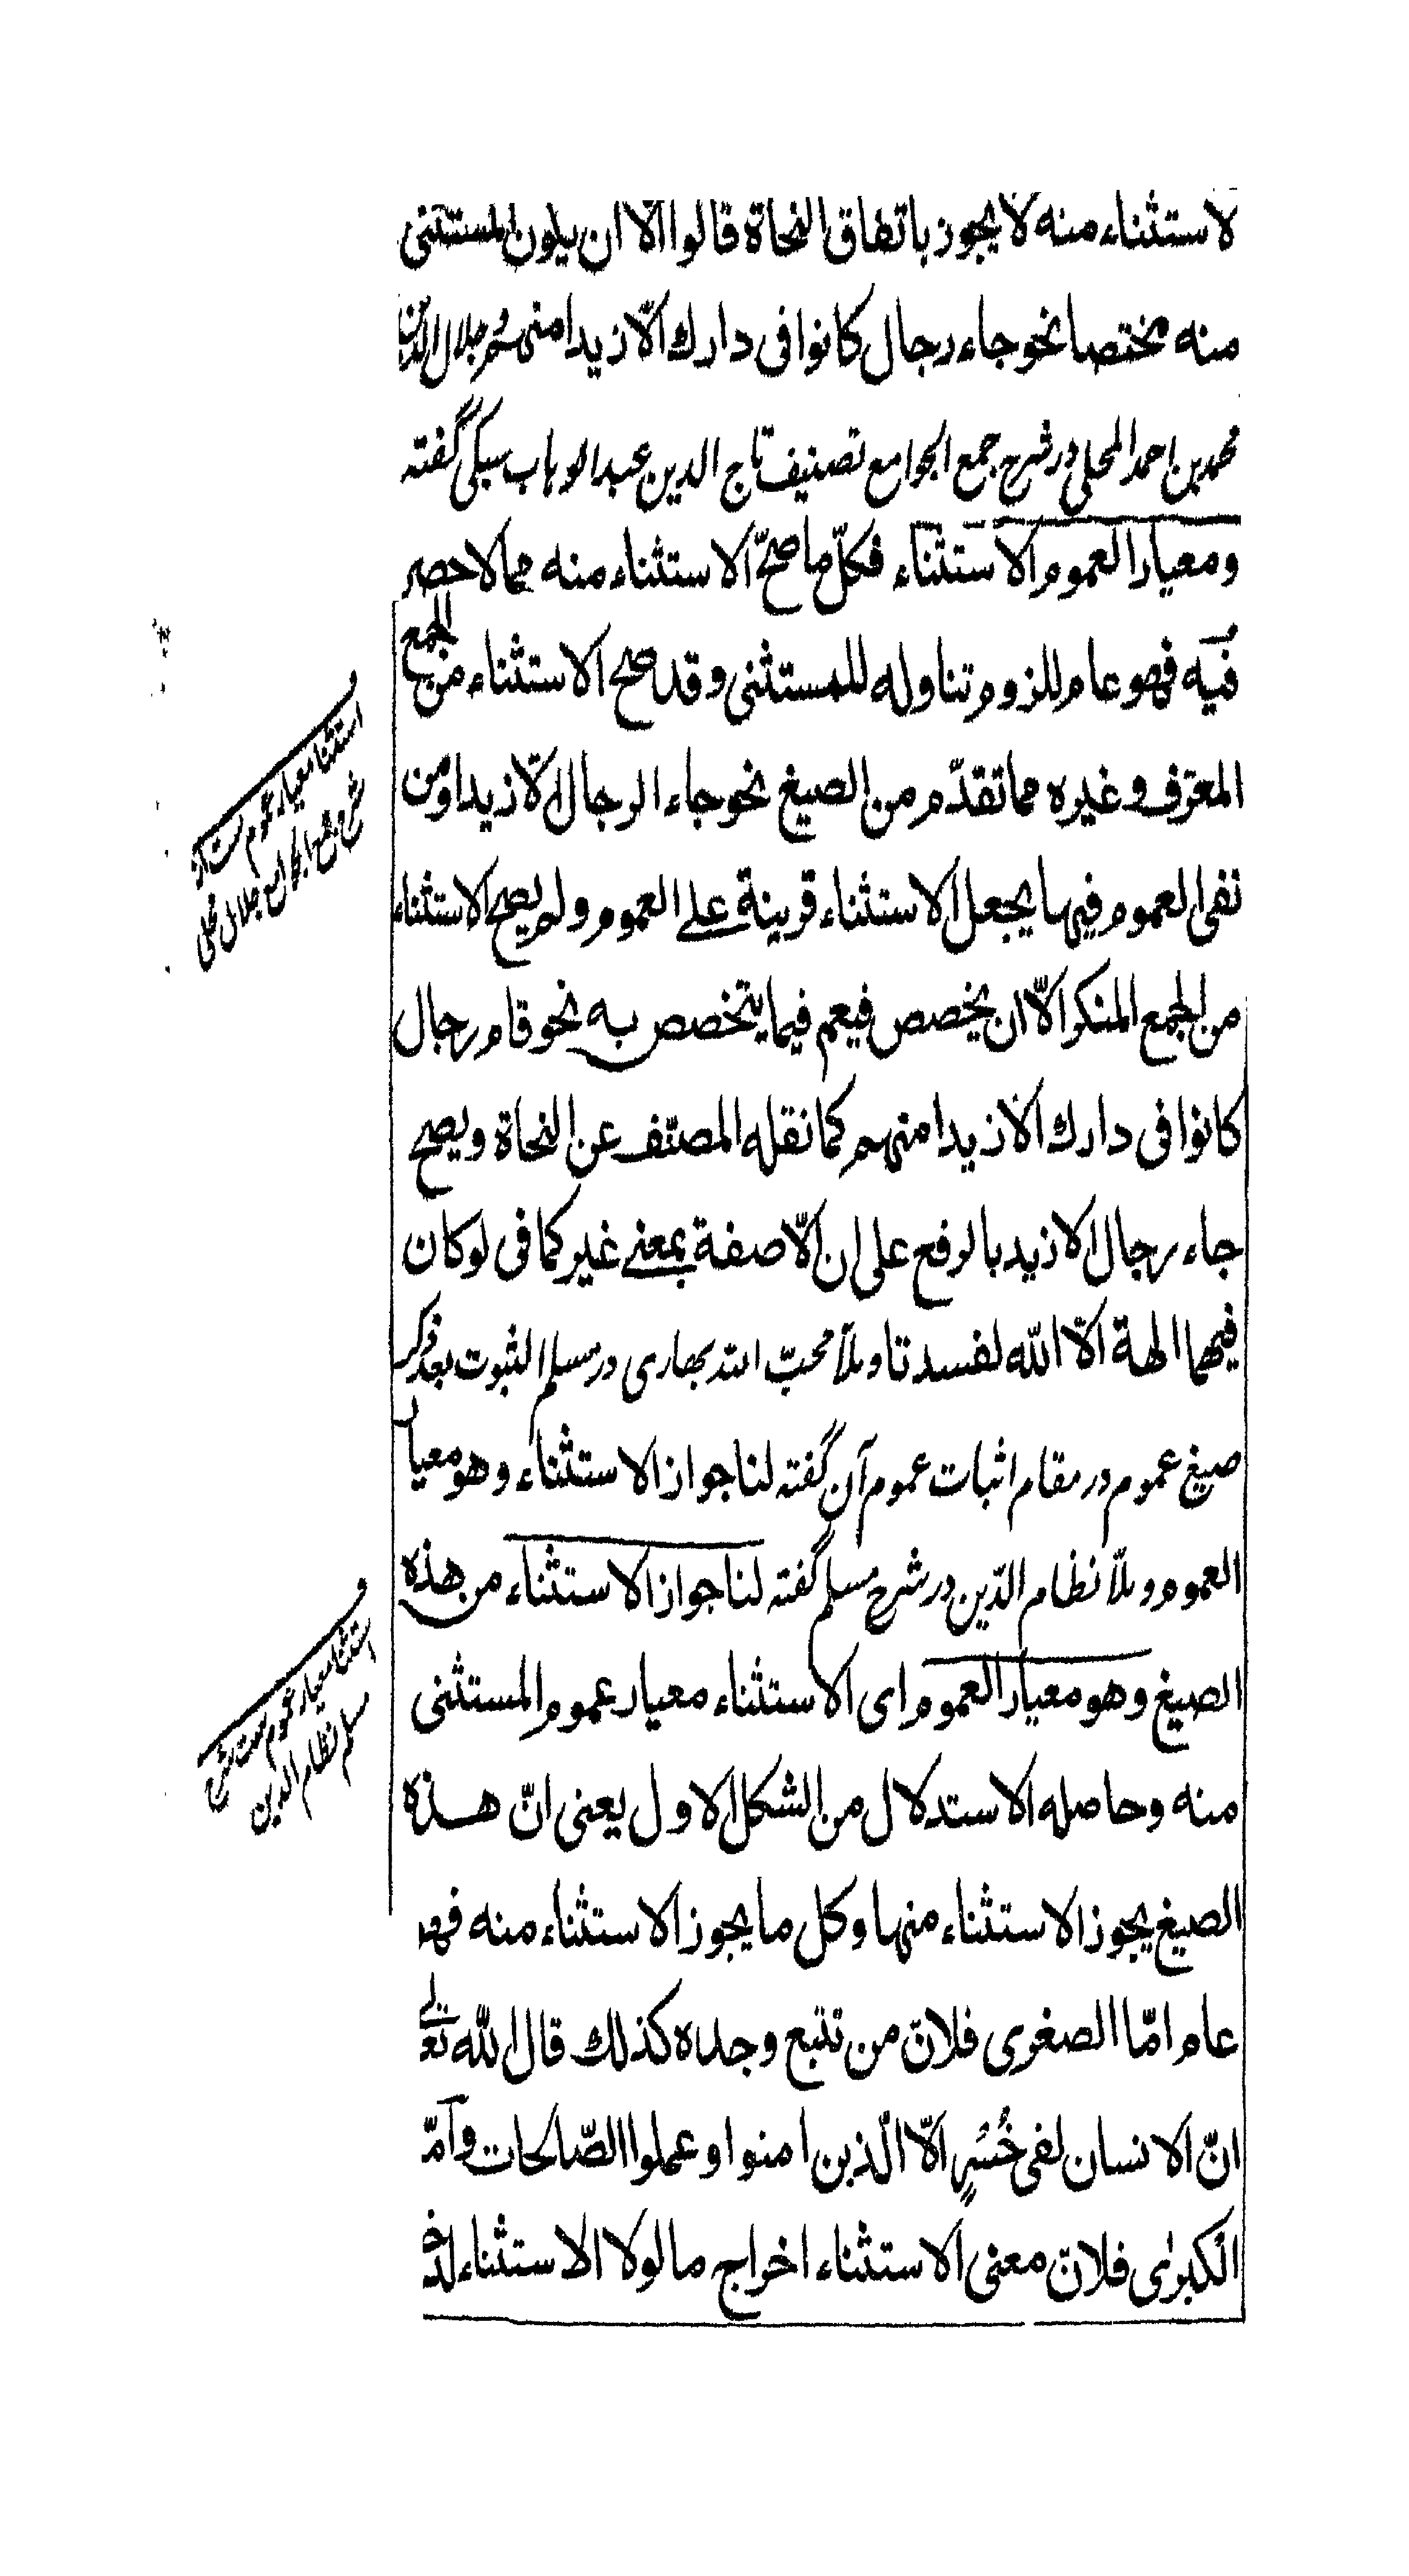 لاستثناء منه لا يجوز باتفاق النحاة قالوا الا ان يكون المستثنى
منه مختصا نحو جاء رجال كانوا فى دارك الّا زيدا منهم و جلال الدين
محمد بن احمد المحلي در شرح جمع الجوامع تصنيف تاج الدين عبد الوهاب سبكي گفته
ومعيار العموم الاستثناء فكلّ ما صحّ الاستثناء منه مما لا حصر
فيه فهو عام للزوم تناوله للمستثنى وقد صح الاستثناء من الجمع
المعرّف وغيره مما تقدّم من الصيغ نحو جاء الرجال الّا زيدا ومن
نفى العموم فيها يجعل الاستثناء قرينة على العموم ولم يصح الاستثناء
من الجمع المنكر الّا ان يخصص فيعم فيما يتخصص به نحو قام رجال
كانوا فى دارك الا زيدا منهم كما نقله المصنّف عن النحاة ويصح
جاء رجال الا زيد بالرفع على ان الّا صفة بمعنى غير كما فى لو كان
فيهما الهة الّا الله لفسدتا وملّا محبّ الله بهارى در مسلم الثبوت بعد ذكر
صيغ عموم در مقام اثبات عموم آن گفته لنا جواز الاستثناء وهو معيار
العموم و ملّا نظام الدّين در شرح مسلم گفته لنا جواز الاستثناء من هذه
الصيغ وهو معيار العموم اى الاستثناء معيار عموم المستثنى
منه وحاصله الاستدلال من الشكل الاول يعنى انّ هذه
الصيغ يجوز الاستثناء منها وكل ما يجوز الاستثناء منه فهو
عام امّا الصغرى فلانّ من تتبع وجده كذلك قال الله تعالى
انّ الانسان لفى خُسْرٍ الّا الّذين امنوا وعملوا الصّالحات وآمّا
الكبرى فلانّ معنى الاستثناء اخراج ما لولا الاستثناء لدخل
و
استثنا معيار عموم ست از
شرح جمع الجوامع جلال محلى
و
استثنا معيار عموم ست شرح
مسلم نظام الدين